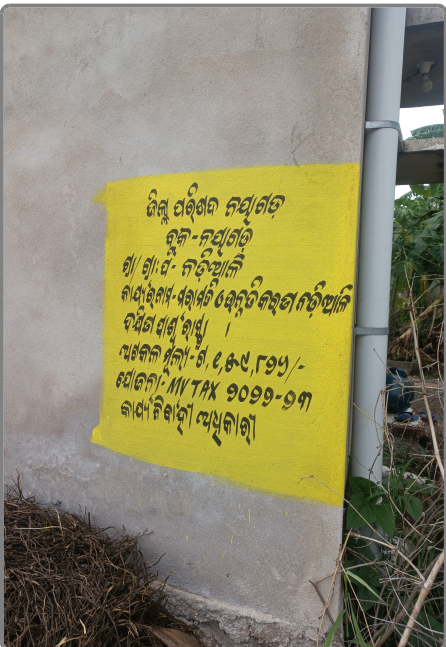 ଜିଲ୍ଲା ପରିଷଦ ନୟାଗଡ଼
ବ୍ଲକ - ନୟାଗଡ଼
ଗ୍ରା/ ଗ୍ରା:ପ - ନଡ଼ିଆଳି
କାର୍ଯ୍ୟର ନାମ - ମରାମତି ଓ ଉନ୍ନତିକରଣ ନଡ଼ିଆଳି
ଦକ୍ଷିଣ ପାର୍ଶ୍ୱ ରାସ୍ତା ।
ଅଟକଳ ମୂଲ୍ୟ - ଟ,
ଯୋଜନା - MV TAX ୨୦୨୨-୨୩
କାର୍ଯ୍ୟ ନିର୍ବାହୀ ଅଧିକାରୀ